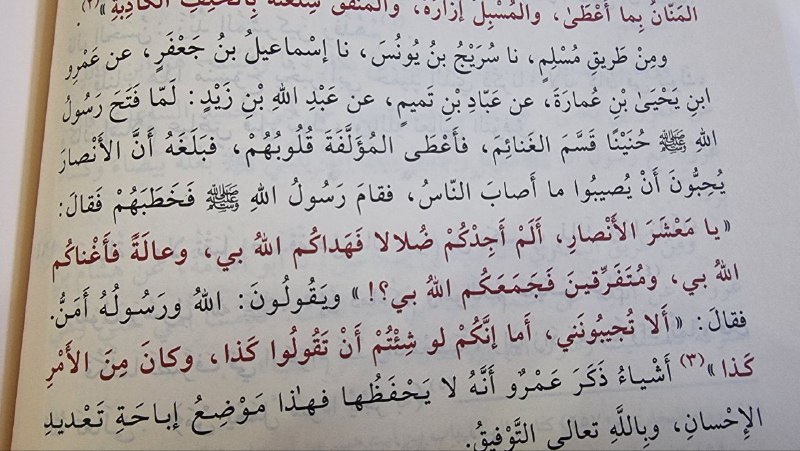 المَنّانُ بِما أَعْطَىٰ، والمُسْبِلُ إزارَهُ، والمُنْفِقُ سِلْعَتَهُ بِالحَلِفِ الكاذِبَةِ»(٢).
ومِنْ طَرِيقِ مُسْلِمٍ، نا سُرَيْجُ بنُ يُونُسَ، نا إسْماعيلُ بنُ جَعْفَرٍ، عن عَمْرِو
ابنِ يَحْيَىٰ بْنِ عُمارَةَ، عن عَبّادِ بْنِ تَميمٍ، عن عَبْدِ اللهِ بْنِ زَيْدٍ: لَمّا فَتَحَ رَسُولُ
اللهِ ﷺ حُنَيْنًا قَسَّمَ الغَنائِمَ، فأَعْطَى المُؤَلَّفَةَ قُلُوبُهُمْ، فبَلَغَهُ أَنَّ الأَنْصارَ
يُحِبُّونَ أَنْ يُصيبُوا ما أَصابَ النّاسُ، فقامَ رَسُولُ اللهِ ﷺ فَخَطَبَهُمْ فَقالَ:
«يا مَعْشَرَ الأَنْصارِ، أَلَمْ أَجِدْكُمْ ضُلالا فَهَداكُم اللهُ بي، وعالَةً فأَغْناكُم
اللهُ بي، ومُتَفَرِّقينَ فَجَمَعَكُم اللهُ بي؟!» ويَقُولُونَ: اللهُ ورَسُولُهُ أَمَنُّ.
فقالَ: «أَلا تُجيبُونَني، أَما إنَّكُمْ لو شِئْتُمْ أَنْ تَقُولُوا كَذا، وكانَ مِنَ الأَمْرِ
كَذا»(٣) أَشْياءُ ذَكَرَ عَمْرٌو أَنَّهُ لا يَحْفَظُها فهٰذا مَوْضِعُ إباحَةِ تَعْديدِ
الإِحْسانِ، وبِاللَّهِ تعالى التَّوْفيقُ.